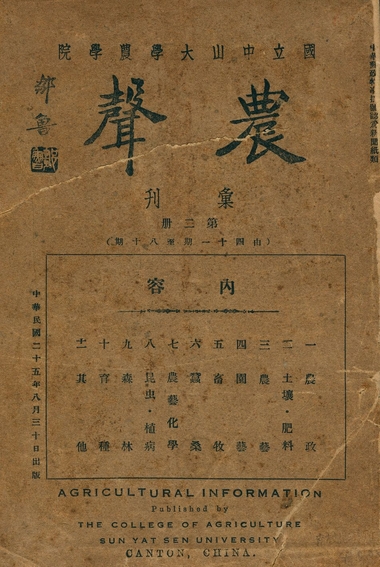 國立中山大學農學院
農聲
鄒魯
彙刊
第三册
(由四十一期至八十期)
內容
一 農政
二 土壤·肥料
三 農藝
四 園藝
五 畜牧
六 蠶桑
七 農藝化學
八 昆虫·植病
九 森林
十 育種
十一 其他
中華民國二十五年八月三十日出版
AGRICULTURAL INFORMATION
Published by
THE COLLEGE OF AGRICULTURE
SUN YAT SEN UNIVERSITY
CANTON, CHINA.